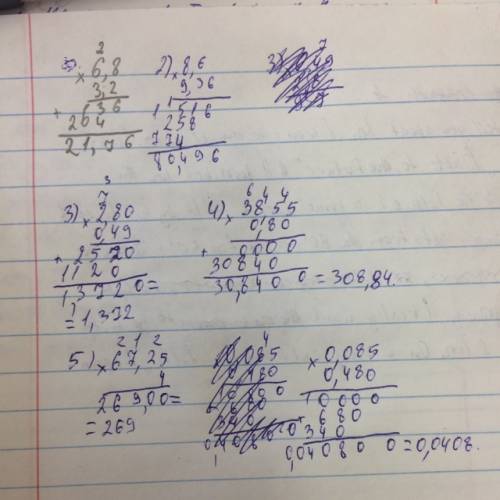 2
1) × 6,8
3,2
+ 136
204
21,76
2) × 8,6
9,36
1 1 516
258
774
80,496
3
7
3) × 280
0,49
+ 2520
1120
1,3720 =
1
= 1,372
6 4 4
4) × 3855
0,80
+ 0000
30840
30,8400 = 308,84.
2 1 2
5) × 67,25
4
269,00 =
= 269
× 0,085
0,480
10000
680
340
0,040800 = 0,0408.